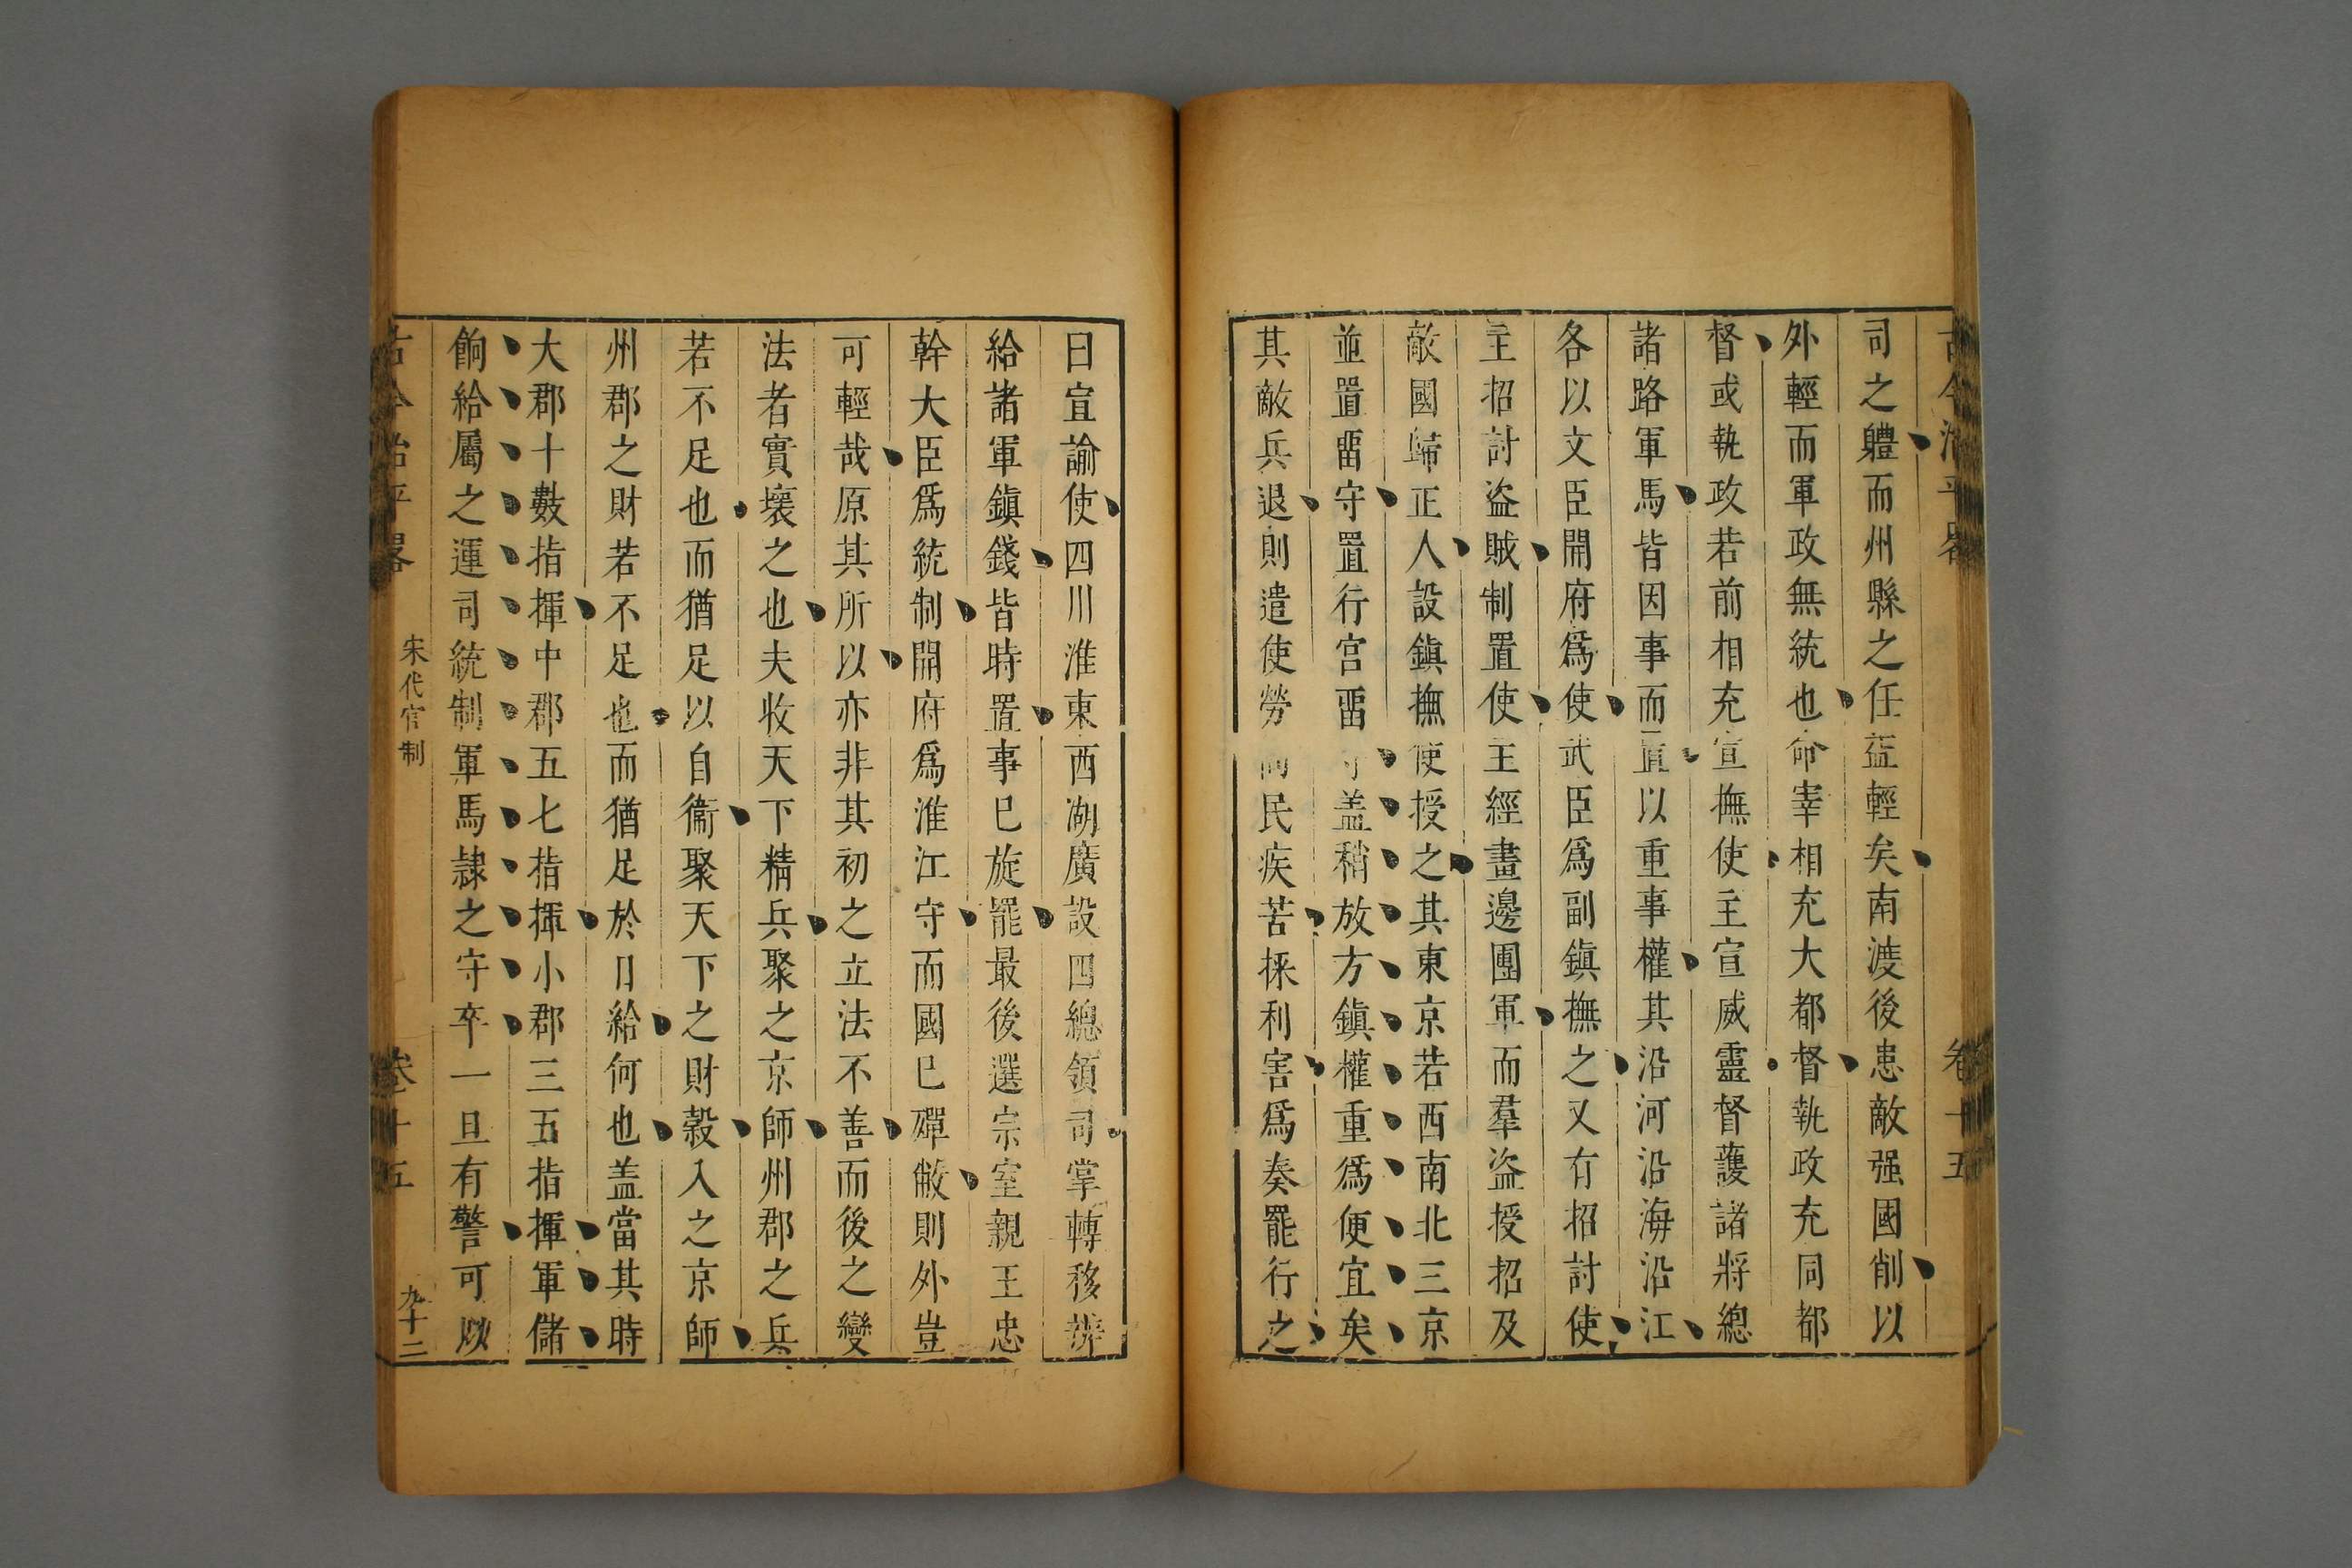 古今治平畧
卷十五
司之體而州縣之任益輕矣南渡後患敵强國削以
外輕而軍政無統也命宰相充大都督執政充同都
督或執政若前相充宣撫使主宣威靈督護諸將總
諸路軍馬皆因事而置以重事權其沿河沿海沿江
各以文臣開府爲使武臣爲副鎮撫之又有招討使
主招討盗賊制置使主經畫邊團軍而羣盗授招及
敵國歸正人設鎮撫使授之其東京若西南北三京
並置畱守置行宫畱守盖稍放方鎮權重爲便宜矣
其敵兵退則遣使勞問民疾苦採利害爲奏罷行之
曰宣諭使四川淮東西湖廣設四總領司掌轉移辨
給諸軍鎮錢皆時置事巳旋罷最後選宗室親王忠
幹大臣爲統制開府爲淮江守而國巳殫敝則外豈
可輕哉原其所以亦非其初之立法不善而後之變
法者實壞之也夫收天下精兵聚之京師州郡之兵
若不足也而猶足以自衞聚天下之財榖入之京師
州郡之財若不足也而猶足於日給何也盖當其時
大郡十數指揮中郡五七指揮小郡三五指揮軍儲
餉給屬之運司統制軍馬隷之守卒一旦有警可以
古今治平畧
宋代官制
卷十五
九十二